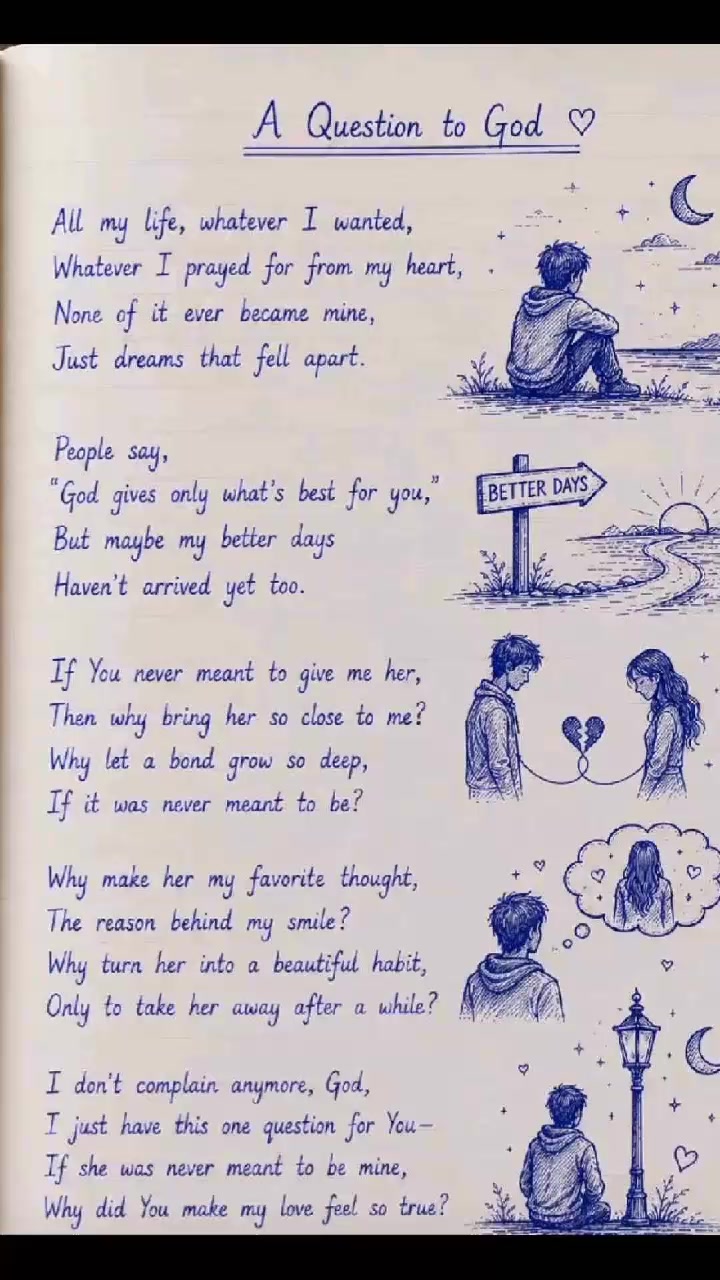 A Question to God ♡
All my life, whatever I wanted,
Whatever I prayed for from my heart,
None of it ever became mine,
Just dreams that fell apart.
People say,
“God gives only what's best for you,”
But maybe my better days
Haven't arrived yet too.
BETTER DAYS
If You never meant to give me her,
Then why bring her so close to me?
Why let a bond grow so deep,
If it was never meant to be?
Why make her my favorite thought,
The reason behind my smile?
Why turn her into a beautiful habit,
Only to take her away after a while?
I don't complain anymore, God,
I just have this one question for You—
If she was never meant to be mine,
Why did You make my love feel so true?